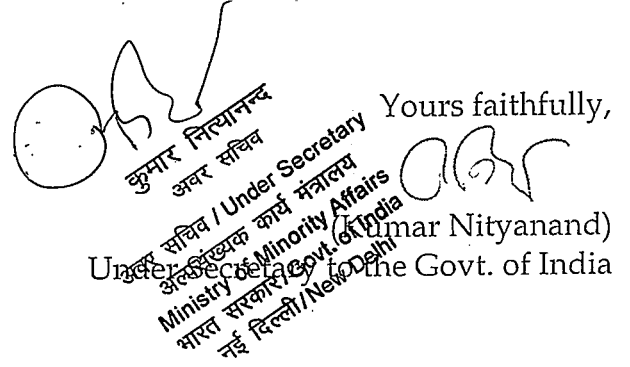 Yours faithfully,
(Kumar Nityanand)
Under Secretary to the Govt. of India
कुमार नित्यानन्द
अवर सचिव
अवर सचिव / Under Secretary
अल्पसंख्यक कार्य मंत्रालय
Ministry of Minority Affairs
भारत सरकार/Govt. of India
नई दिल्ली/New Delhi